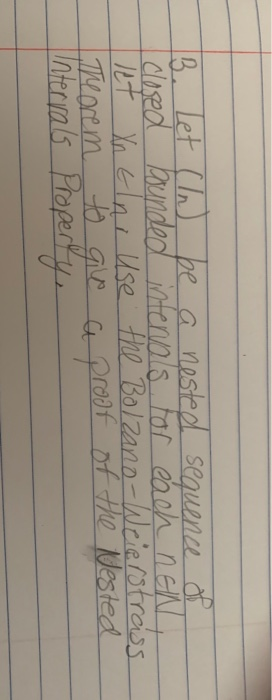 B. Let (In) be a nested sequence of
closed bounded intervals. for each n∈N
let Xn ∈ In, Use the Bolzano-Weierstrass
Theorem to give a proof of the Nested
Intervals Property.